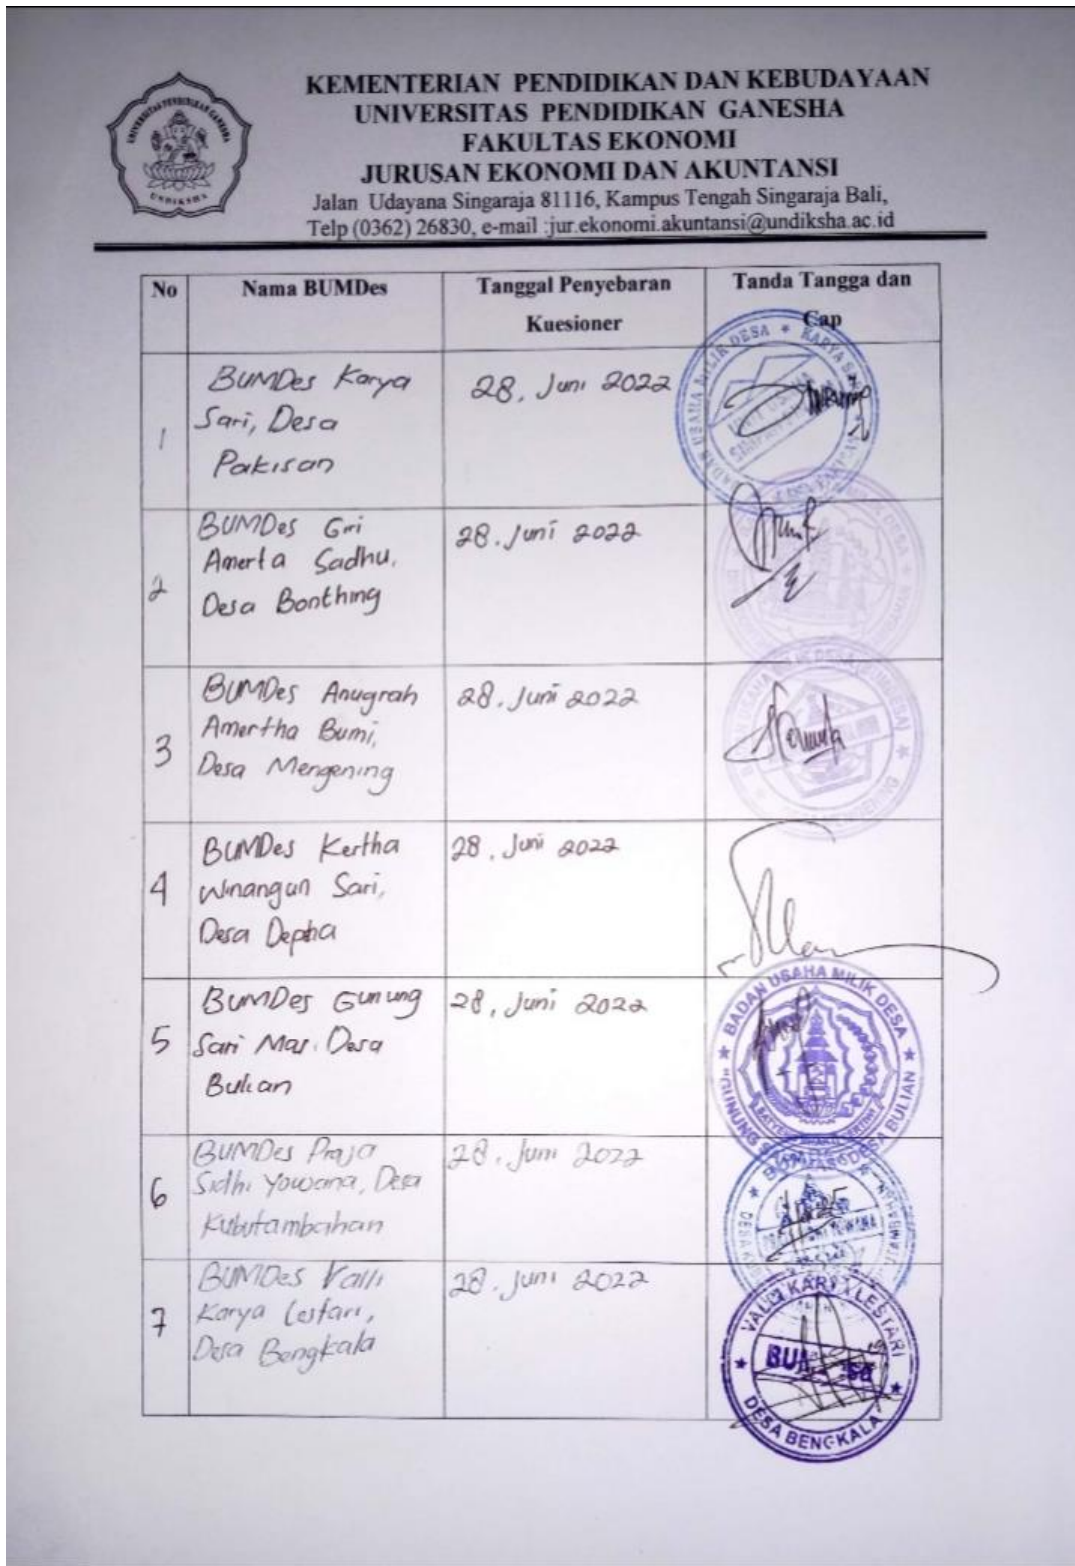 UNIVERSITAS PENDIDIKAN GANESHA
UNDIKSHA
KEMENTERIAN PENDIDIKAN DAN KEBUDAYAAN
UNIVERSITAS PENDIDIKAN GANESHA
FAKULTAS EKONOMI
JURUSAN EKONOMI DAN AKUNTANSI
Jalan Udayana Singaraja 81116, Kampus Tengah Singaraja Bali,
Telp (0362) 26830, e-mail :jur.ekonomi.akuntansi@undiksha.ac.id
No
Nama BUMDes
Tanggal Penyebaran
Kuesioner
Tanda Tangga dan
Cap
1
BUMDes Karya
Sari, Desa
Pakisan
28, Juni 2022
2
BUMDes Giri
Amerta Sadhu,
Desa Bonthing
28. Juni 2022
3
BUMDes Anugrah
Amertha Bumi,
Desa Mengening
28. Juni 2022
4
BUMDes Kertha
Winangun Sari,
Desa Depha
28. Juni 2022
5
BUMDes Gunung
Sari Mas. Desa
Bulian
28, Juni 2022
BADAN USAHA MILIK DESA
"GUNUNG
DESA BULIAN
6
BUMDes Praja
Sidhi Yowana, Desa
Kubutambahan
28. Juni 2022
7
BUMDes Valli
Karya Lestari,
Desa Bengkala
28. Juni 2022
KARYA LESTARI
DESA BENGKALA